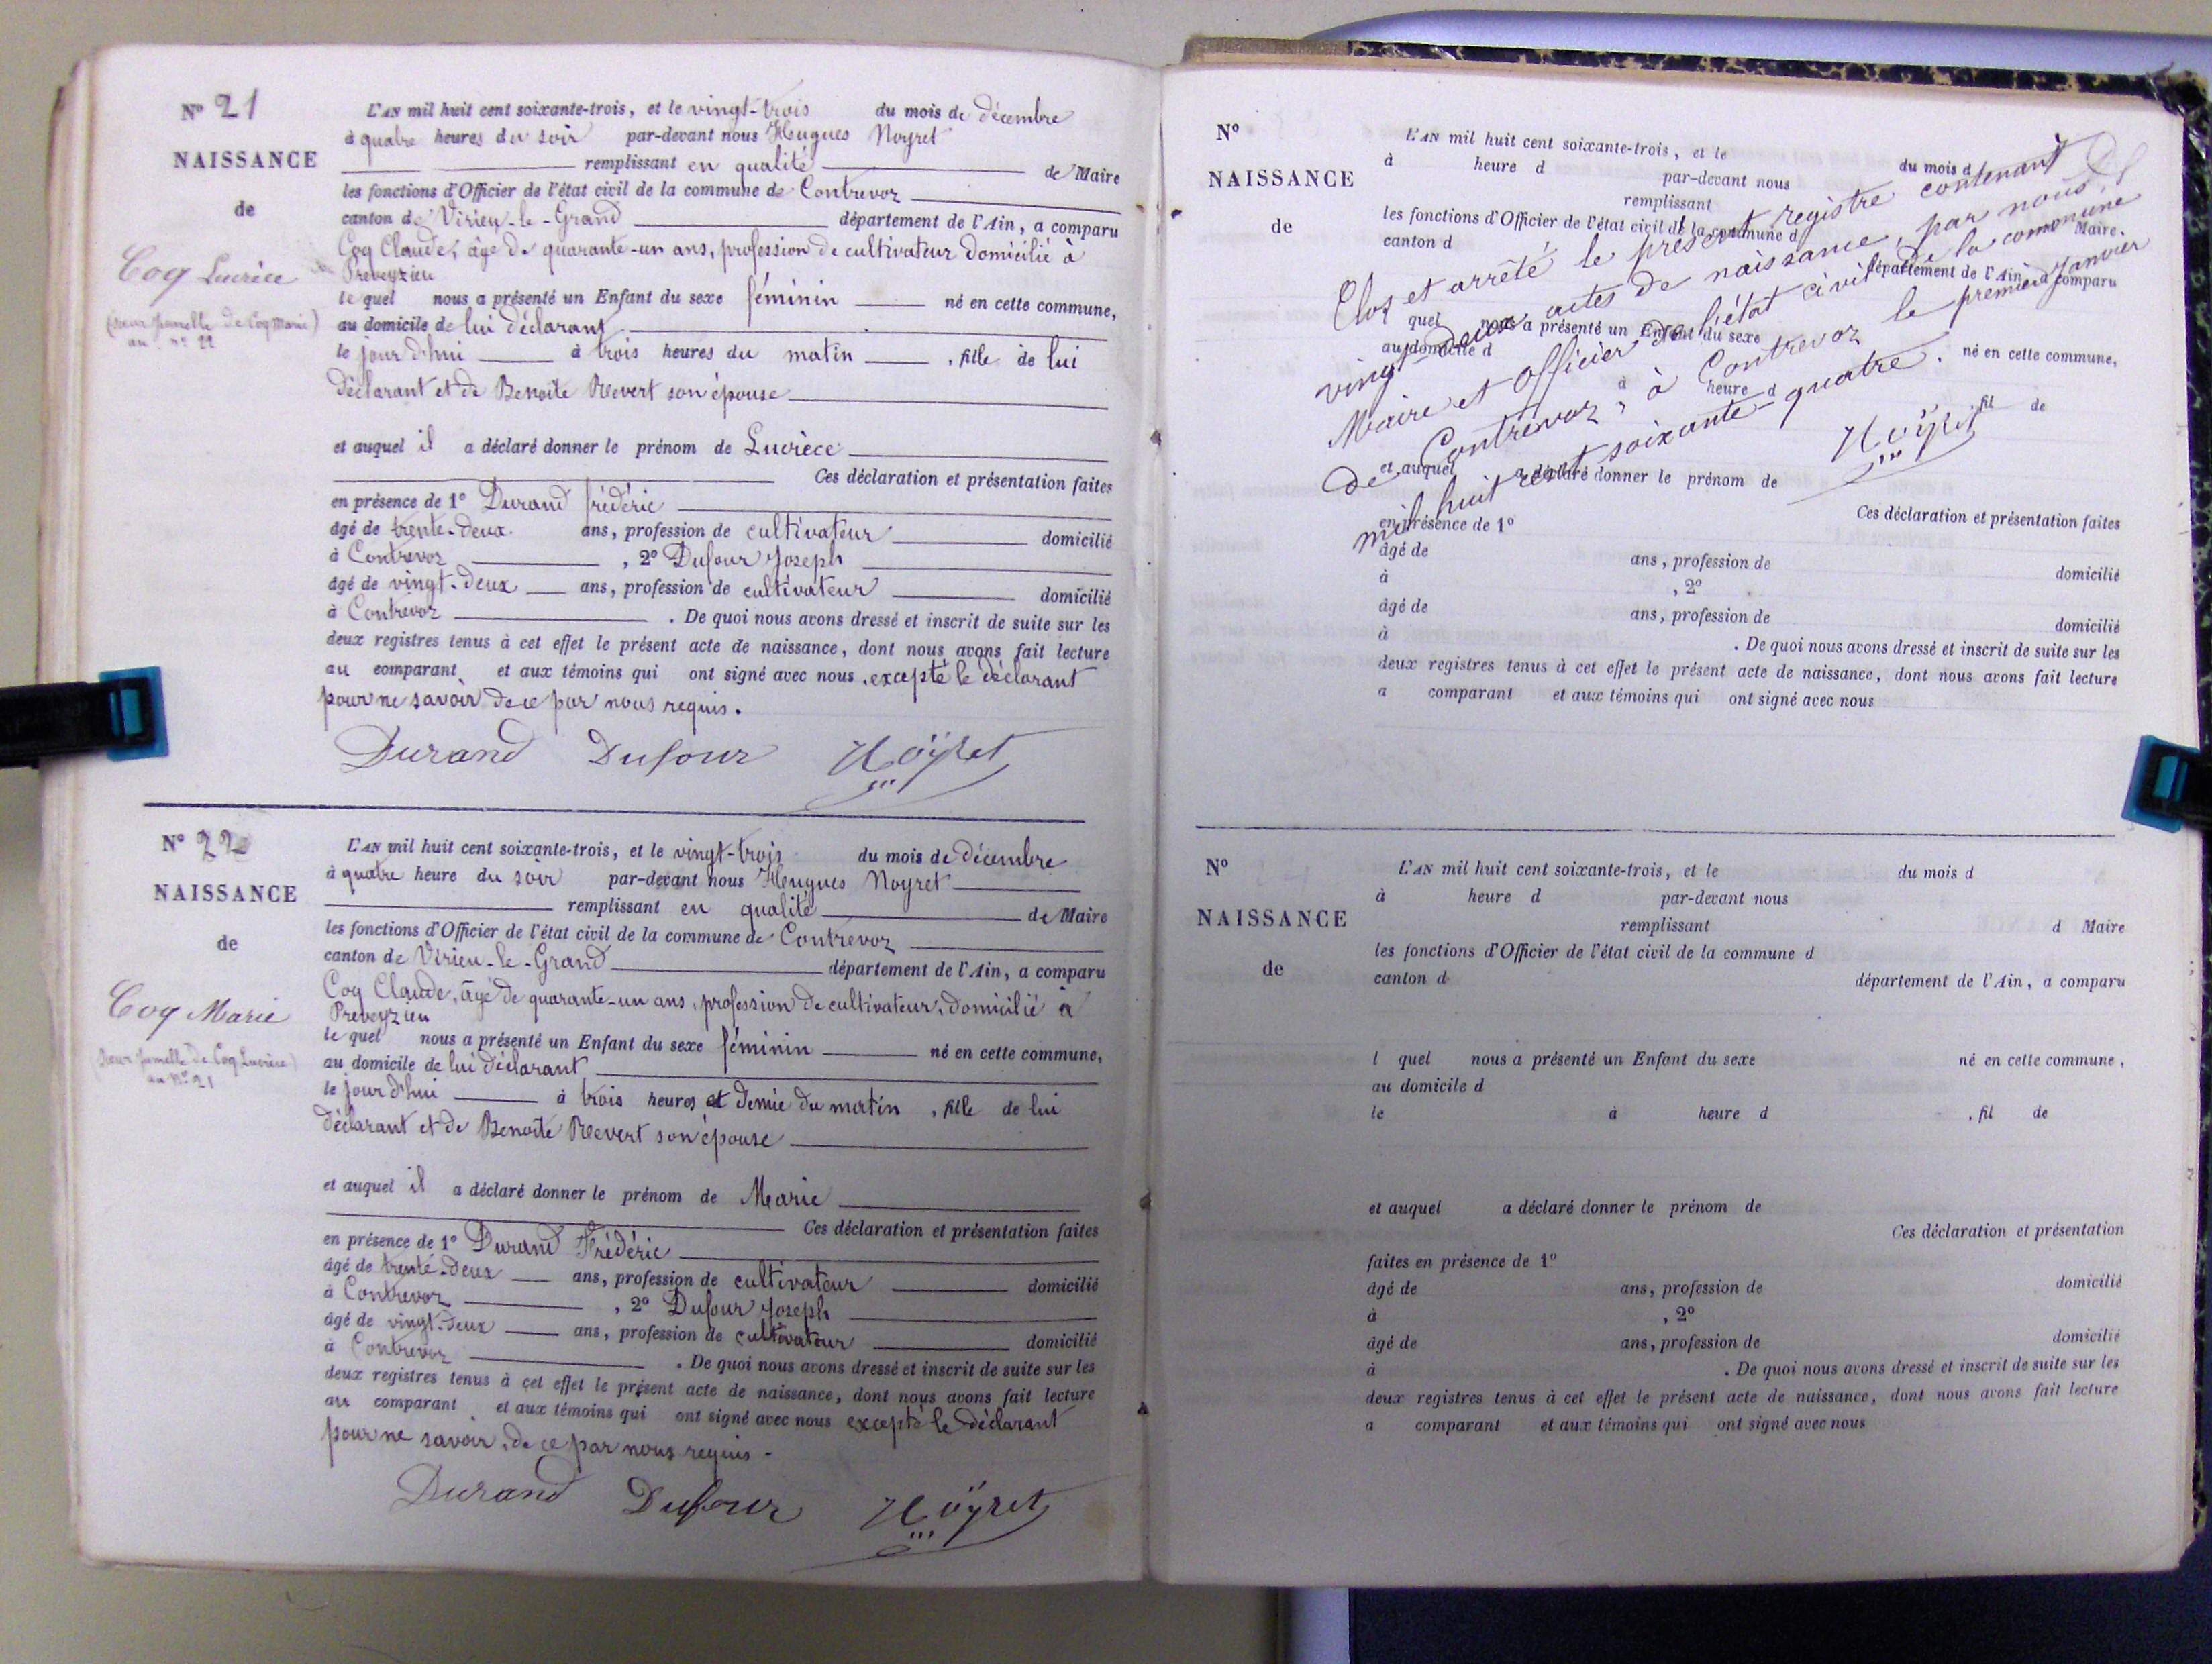 N° 21
NAISSANCE
de
Coq Lucrèce
(sœur jumelle de Coq Marie)
au n° 22
L'AN mil huit cent soixante-trois, et le vingt-trois du mois de décembre
à quatre heures du soir par-devant nous Hugues Noyret
remplissant en qualité de Maire
les fonctions d'Officier de l'état civil de la commune de Contrevoz
canton de Virieu-le-Grand département de l'Ain, a comparu
Coq Claude, âgé de quarante-un ans, profession de cultivateur domicilié à
Preveyzieu
le quel nous a présenté un Enfant du sexe féminin né en cette commune,
au domicile de lui déclarant
le jour d'hui à trois heures du matin, fille de lui
déclarant et de Benoîte Revert son épouse
et auquel il a déclaré donner le prénom de Lucrèce
Ces déclaration et présentation faites
en présence de 1° Durand frédéric
âgé de trente-deux ans, profession de cultivateur domicilié
à Contrevoz, 2° Dufour Joseph
âgé de vingt-deux ans, profession de cultivateur domicilié
à Contrevoz. De quoi nous avons dressé et inscrit de suite sur les
deux registres tenus à cet effet le présent acte de naissance, dont nous avons fait lecture
au comparant et aux témoins qui ont signé avec nous, excepté le déclarant
pour ne savoir de ce par nous requis.
Durand Dufour Noÿret
N° 22
NAISSANCE
de
Coq Marie
(sœur jumelle de Coq Lucrèce)
au N° 21
L'AN mil huit cent soixante-trois, et le vingt-trois du mois de décembre
à quatre heure du soir par-devant nous Hugues Noyret
remplissant en qualité de Maire
les fonctions d'Officier de l'état civil de la commune de Contrevoz
canton de Virieu-le-Grand département de l'Ain, a comparu
Coq Claude, âgé de quarante-un ans, profession de cultivateur, domicilié à
Preveyzieu
le quel nous a présenté un Enfant du sexe féminin né en cette commune,
au domicile de lui déclarant
le jour d'hui à trois heures et demie du matin, fille de lui
déclarant et de Benoîte Revert son épouse
et auquel il a déclaré donner le prénom de Marie
Ces déclaration et présentation faites
en présence de 1° Durand Frédéric
âgé de trente-deux ans, profession de cultivateur domicilié
à Contrevoz, 2° Dufour Joseph
âgé de vingt-deux ans, profession de cultivateur domicilié
à Contrevoz. De quoi nous avons dressé et inscrit de suite sur les
deux registres tenus à cet effet le présent acte de naissance, dont nous avons fait lecture
au comparant et aux témoins qui ont signé avec nous excepté le déclarant
pour ne savoir, de ce par nous requis.
Durand Dufour Noÿret
N°
NAISSANCE
de
L'AN mil huit cent soixante-trois, et le du mois d
à heure d par-devant nous
remplissant d Maire.
les fonctions d'Officier de l'état civil de la commune d
canton d département de l'Ain, a comparu
quel nous a présenté un Enfant du sexe né en cette commune,
au domicile d
à heure d fil de
et auquel a déclaré donner le prénom de
Ces déclaration et présentation faites
en présence de 1°
âgé de ans, profession de domicilié
à , 2°
âgé de ans, profession de domicilié
à . De quoi nous avons dressé et inscrit de suite sur les
deux registres tenus à cet effet le présent acte de naissance, dont nous avons fait lecture
a comparant et aux témoins qui ont signé avec nous
Clos et arrêté le présent registre contenant
vingt-deux actes de naissance, par nous,
Maire et Officier de l'état civil de la commune
de Contrevoz, à Contrevoz le premier Janvier
mil huit cent soixante-quatre.
Noÿret
N°
NAISSANCE
de
L'AN mil huit cent soixante-trois, et le du mois d
à heure d par-devant nous
remplissant d Maire
les fonctions d'Officier de l'état civil de la commune d
canton d département de l'Ain, a comparu
l quel nous a présenté un Enfant du sexe né en cette commune,
au domicile d
le à heure d , fil de
et auquel a déclaré donner le prénom de
Ces déclaration et présentation
faites en présence de 1°
âgé de ans, profession de domicilié
à , 2°
âgé de ans, profession de domicilié
à . De quoi nous avons dressé et inscrit de suite sur les
deux registres tenus à cet effet le présent acte de naissance, dont nous avons fait lecture
a comparant et aux témoins qui ont signé avec nous